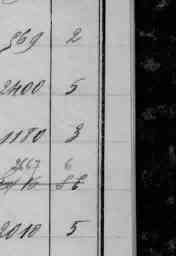 869 2
2400 5
1180 3
2667 6
2010 5